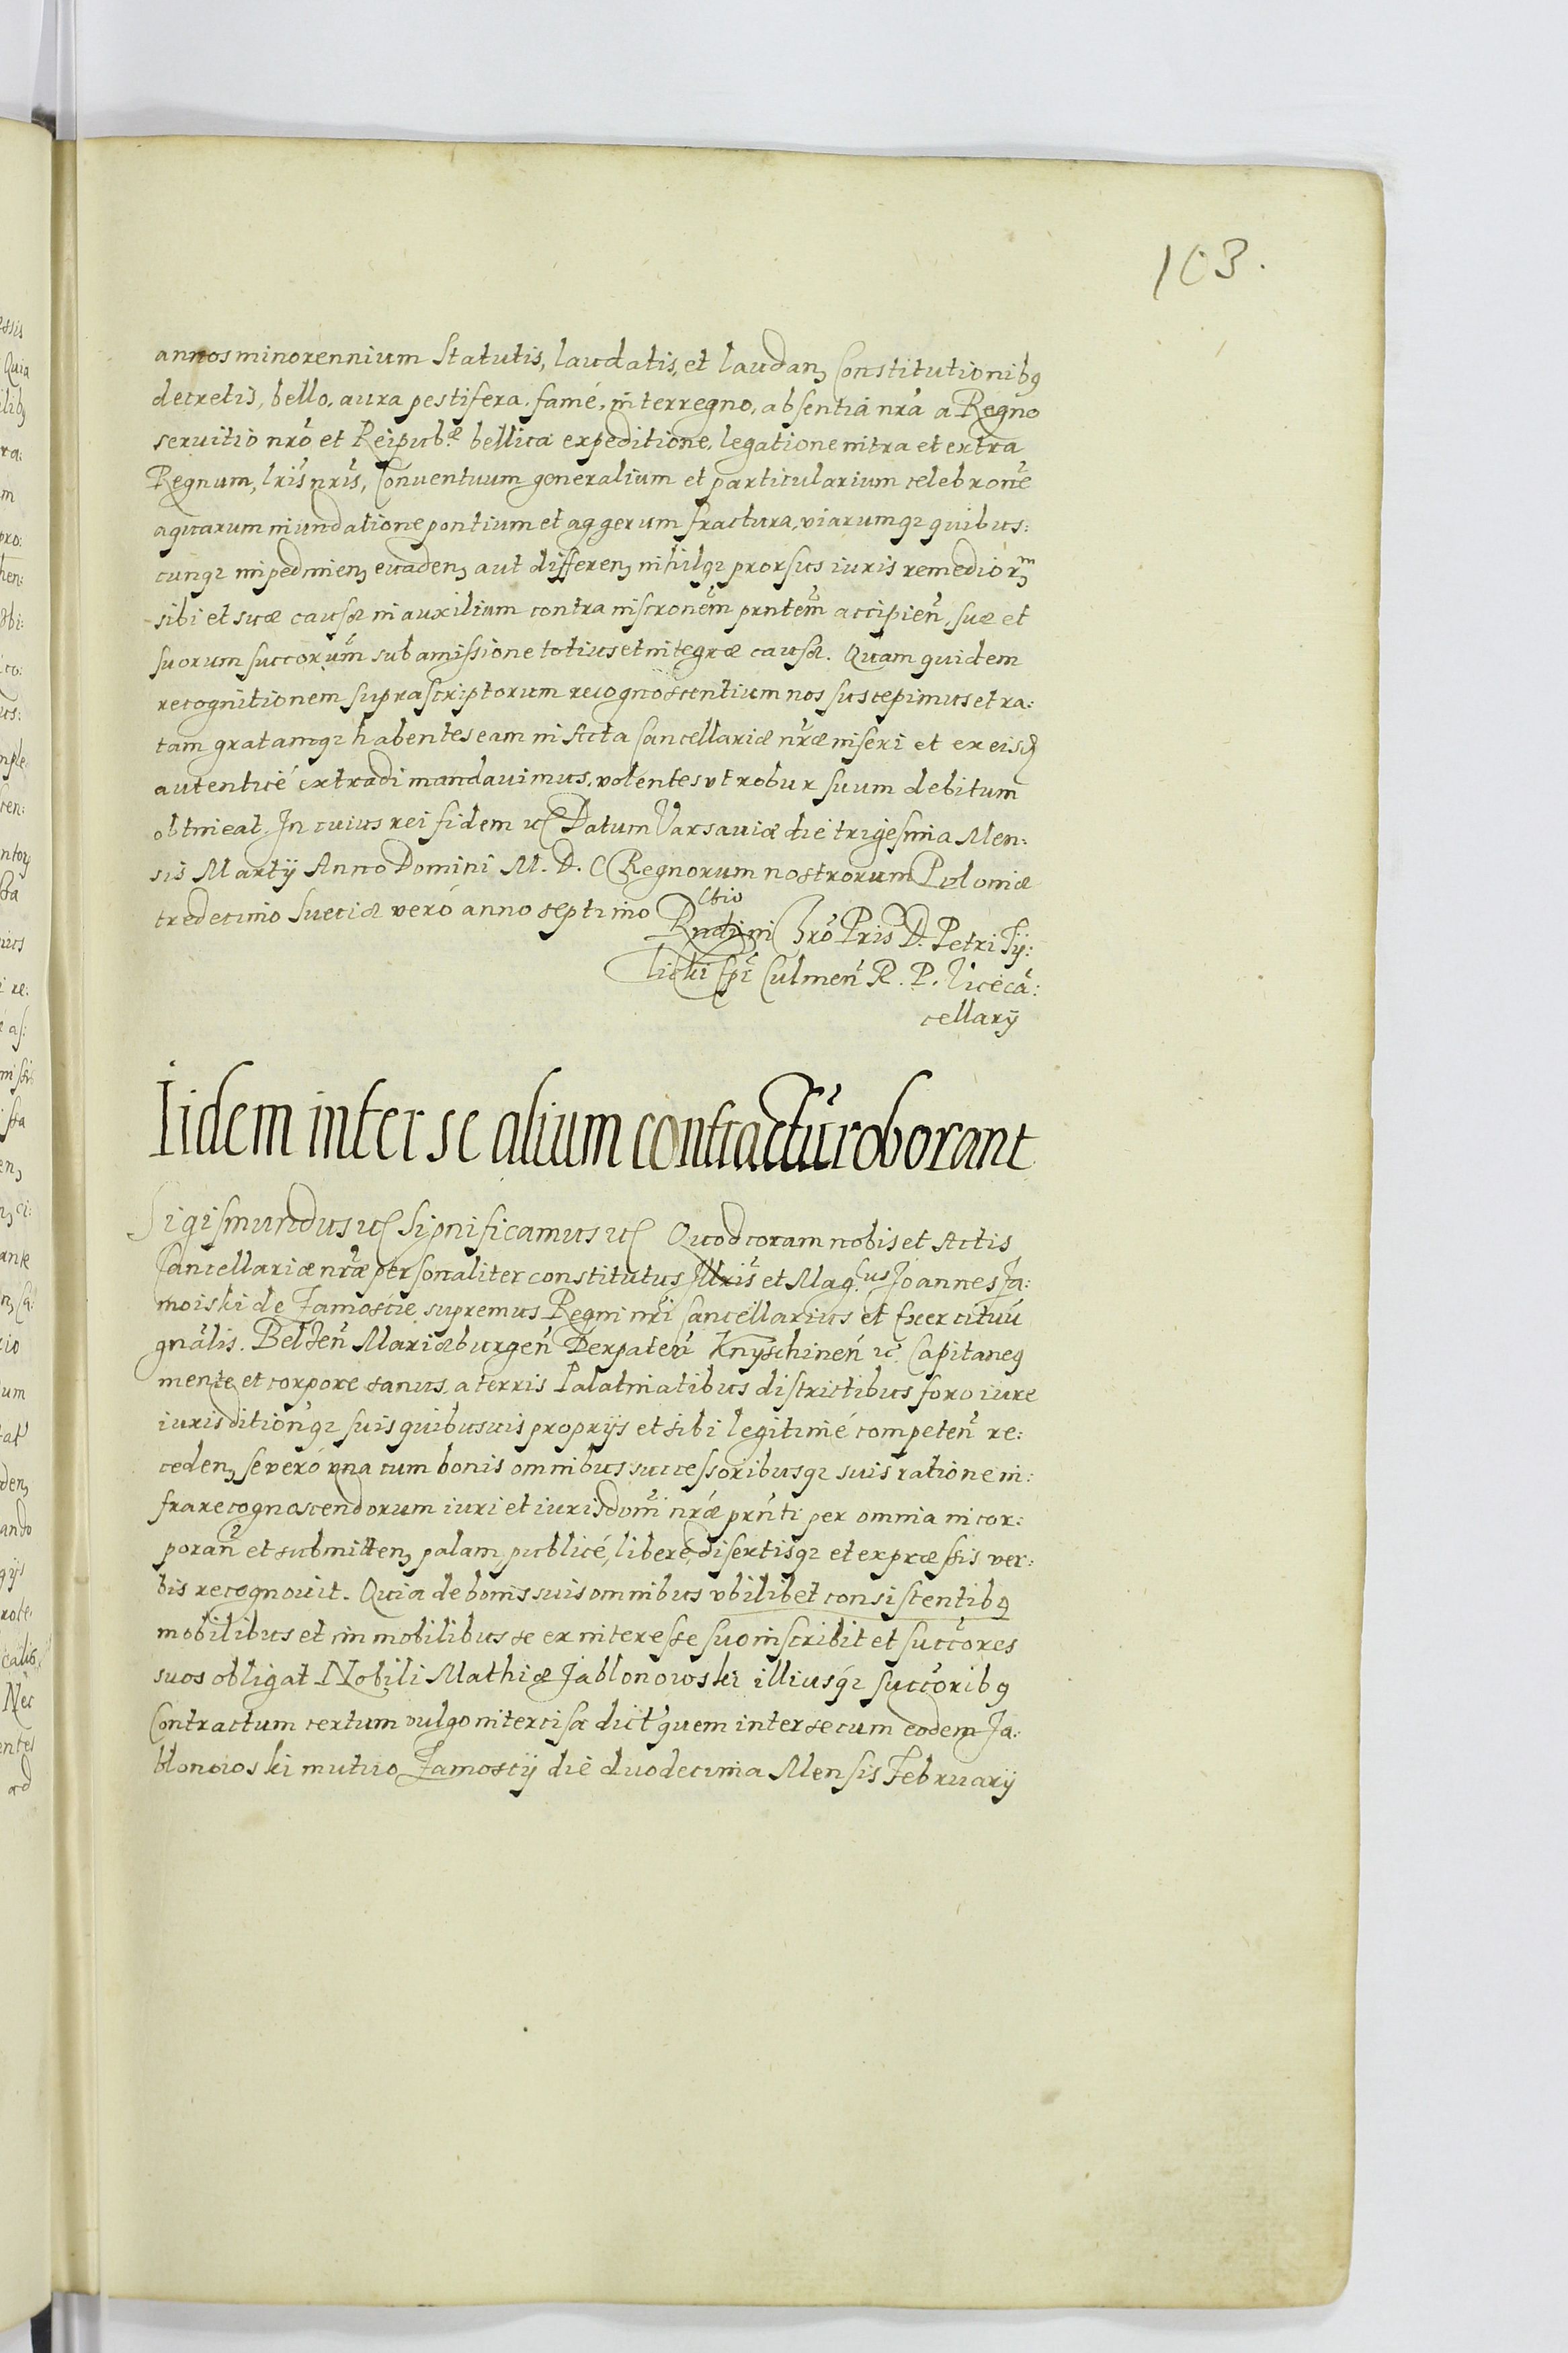 103.
annos minorennium Statutis, laudatis, et laudanȝ Constitutionibꝰ
decretis, bello, aura pestifera, famé, interregno, absentia nr̃a a Regno
seruitio nr̃o et Reipub.æ bellica expeditione, legatione intra et extra
Regnum, lr̃is nr̃is, Conuentuum generalium et particularium celebrone͂
aquarum inundatione pontium et aggerum fractura, viarumqȝ quibus:
cunqȝ impedimenȝ euadenȝ aut differenȝ nihilqȝ prorsus iuris remediorͫ
sibi et suæ causæ in auxilium contra inscronem͂ prntem͂ accipien͂, suæ et
suorum succorum͂ sub amissione totius et integræ causæ. Quam quidem
recognitionem suprascriptorum recognoscentium nos suscepimus et ra:
tam gratamqȝ habentes eam in Acta Cancellariæ nr̃æ inseri et ex eisd
autenticé extradi mandauimus, volentes vt robur suum debitum
obtineat. In cuius rei fidem ꝛc Datum Varsauiæ die trigesima Men:
sis Martÿ Anno Domini M. D. C Regnorum nostrorum Poloniæ
tredecimo Sueciæ veró anno septimo
Rndmi Chro Pris D. Petri Tÿ:
licki Epi͂ Culmen͂ R. P. Vicecã:
cellarÿ
Iidem inter se alium contractũ roborant
Sigismundus ꝛc Significamus ꝛc Quod coram nobis et Actis
Cancellariæ nr̃æ personaliter constitutus Illris͂ et Mag.cus Joannes Za:
moiski de Zamoscie supremus Regni nr̃i Cancellarius et Exercituũ
gnãlis. Belsen͂ Mariæburgen͂ Derpaten͂ Knyschinen͂ ꝛc. Capitaneꝰ
mente et corpore sanus, a terris Palatinatibus districtibus foro iure
iurisdition͂qȝ suis quibusuis proprÿs et sibi legitimé competen͂ re:
cedenȝ se veró vna cum bonis omnibus successoribusqȝ suis ratione in:
fra recognoscendorum iuri et iurisdomĩ nr̃æ prn͂ti per omnia incor:
poran͂ et submittenȝ palam, publicé, liberé, disertisqȝ et expræssis ver:
bis recognouit. Quia de bonis suis omnibus vbilibet consistentibꝰ
mobilibus et immobilibus se ex interesse suo inscribit et succ͂ores
suos obligat Nobili Mathiæ Jablonowski illiusqȝ succ͂oribꝰ
Contractum certum vulgo intercisæ dict͂ quem inter se cum eodem Ja:
blonowski mutuo Zamoscÿ die duodecima Mensis Februarÿ